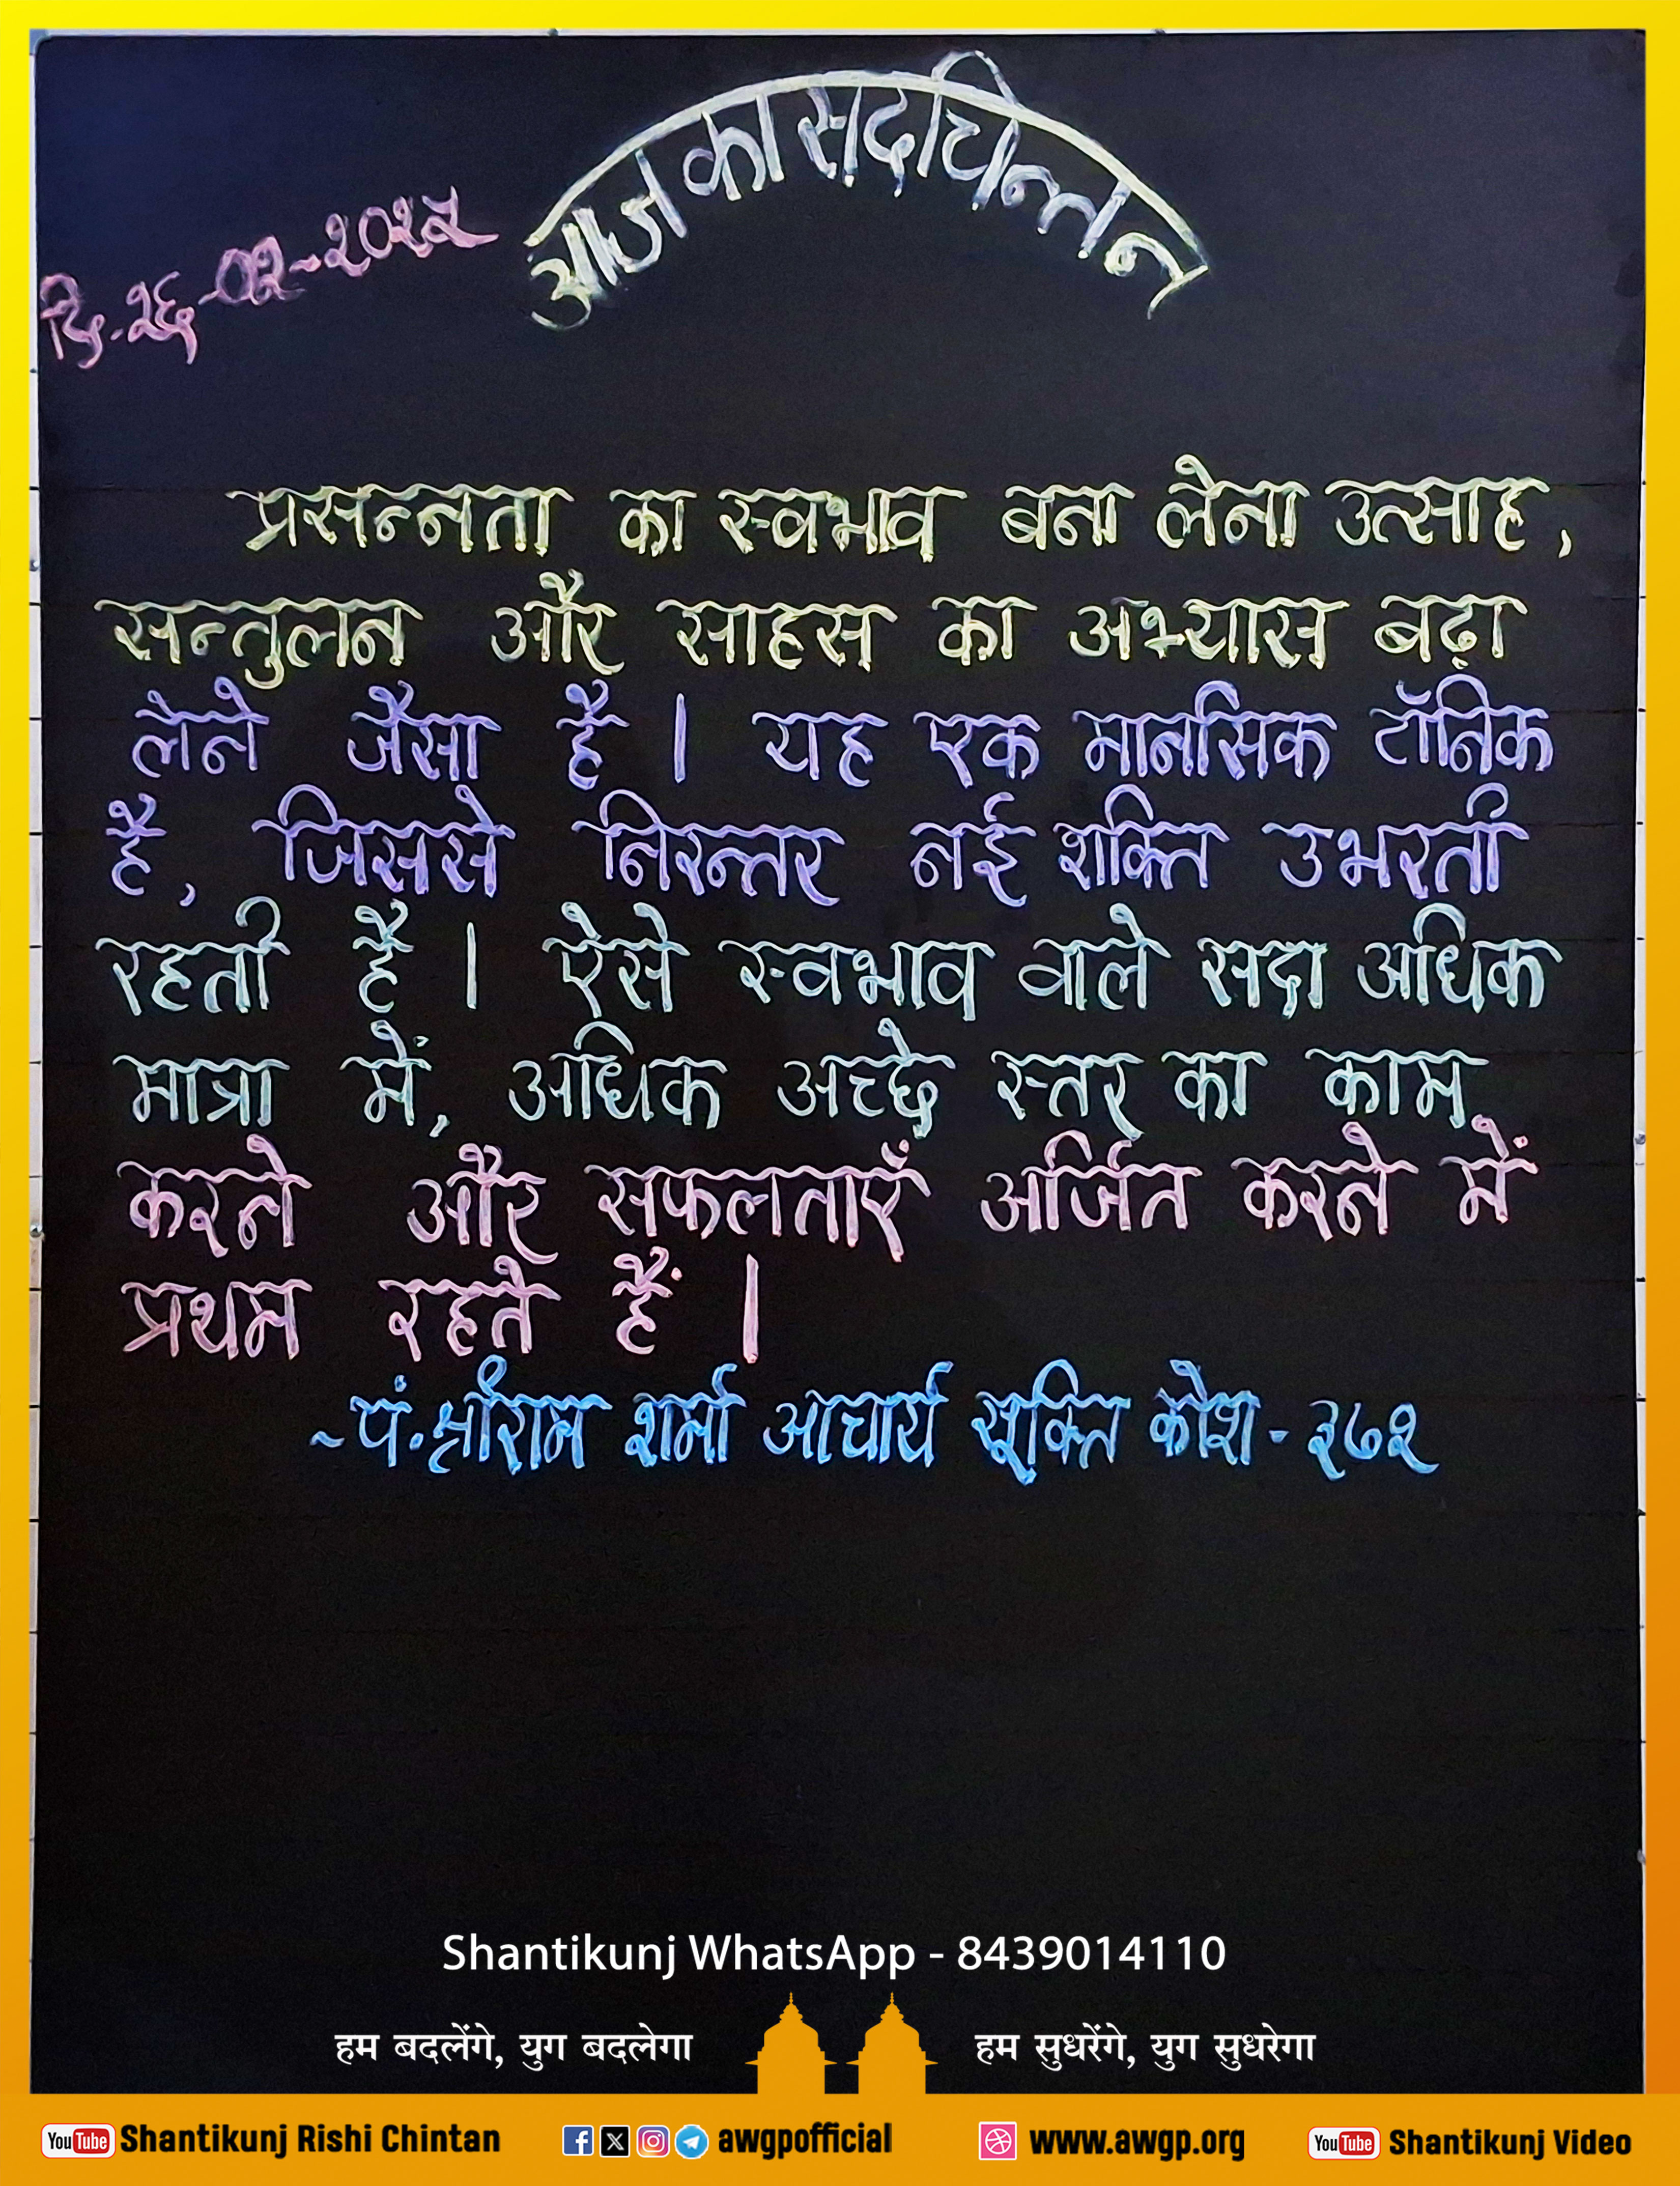 आज का सदचिन्तन
दि.२६-०२-२०२५
प्रसन्नता का स्वभाव बना लेना उत्साह,
सन्तुलन और साहस का अभ्यास बढ़ा
लेने जैसा है । यह एक मानसिक टॉनिक
है, जिससे निरन्तर नई शक्ति उभरती
रहती है । ऐसे स्वभाव वाले सदा अधिक
मात्रा में, अधिक अच्छे स्तर का काम
करने और सफलताएँ अर्जित करने में
प्रथम रहते हैं ।
~पं.श्रीराम शर्मा आचार्य सूक्ति कोश - ३७२
Shantikunj WhatsApp - 8439014110
हम बदलेंगे, युग बदलेगा हम सुधरेंगे, युग सुधरेगा
YouTube Shantikunj Rishi Chintan awgpofficial www.awgp.org YouTube Shantikunj Video